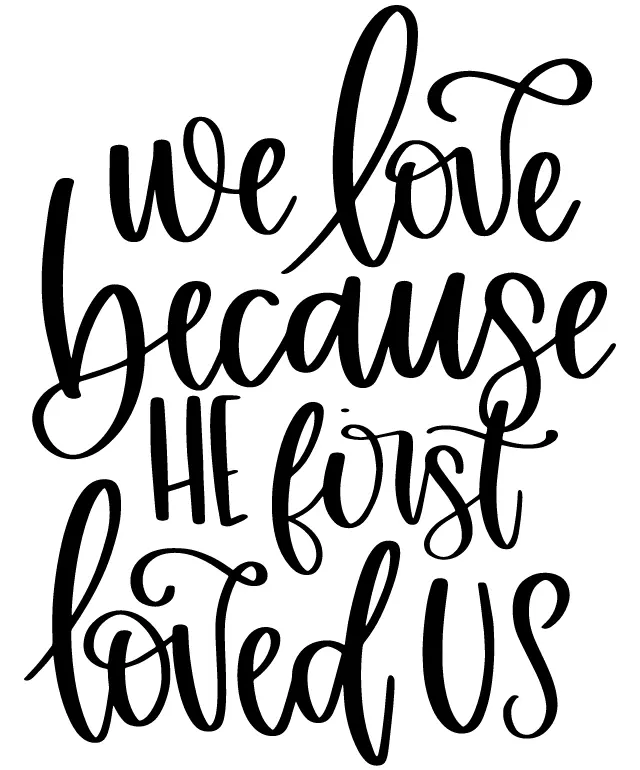 we love
because
HE first
loved US